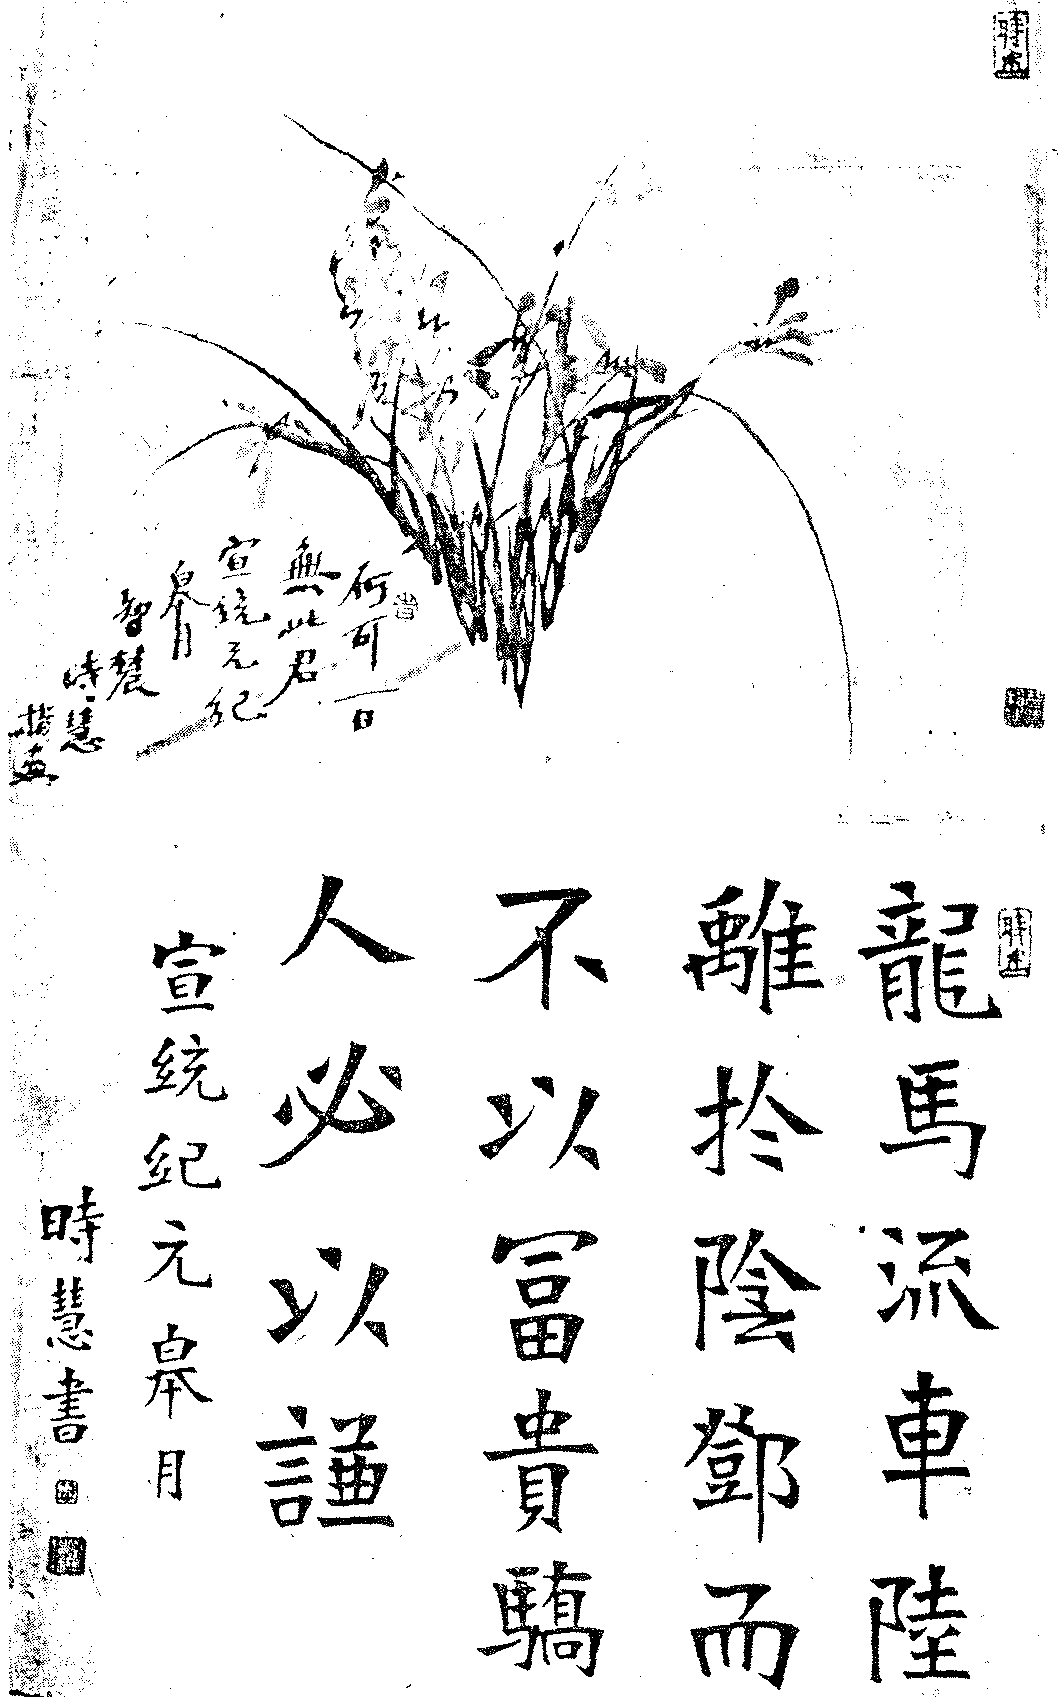 何可一日
無此君
宣統元紀
皋月
智農
時慧
龍馬流車陸
離於陰鄧而
不以富貴驕
人必以謙
宣統紀元皋月
時慧書